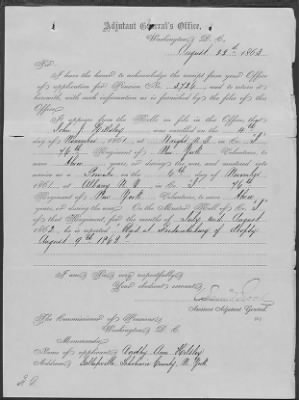 Adjutant General's Office,
Washington, D. C.
August 22th, 1863
Sir:
I have the honor to acknowledge the receipt from your Office
of application for Pension No. 2726, and to return it
herewith, with such information as is furnished by the files of this
Office.
It appears from the Rolls on file in this Office, that
John J. was enrolled on the
day of November, 1861, at N.Y. in Co.
76th Regiment of New York Volunteers, to
serve three years, or during the war, and mustered into
service as a Private on the day of
1861, at Albany N.Y. in Co. 76th
Regiment of New York Volunteers, to serve three
years, or during the war. On the Muster Roll of Co.
of that Regiment, for the months of July and August
1862, he is reported Died at Fredericksburg of
August 9th 1862
I am, Sir, very respectfully,
Your obedient servant,
Assistant Adjutant General.
The Commissioner of Pensions
Washington, D. C.
Memoranda:
Name of applicant, Ann
Address, County, N. York